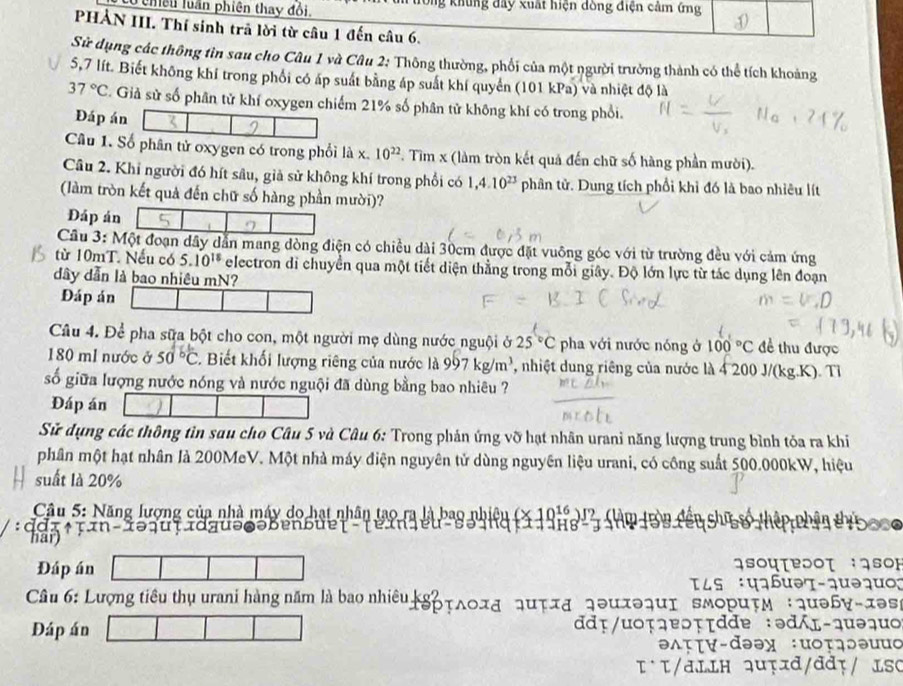 chiều luân phiên thay đổi.
khung dây xuất hiện dòng điện cảm ứng
PHẦN III. Thí sinh trả lời từ câu 1 đến câu 6.
Sử dụng các thông tin sau cho Câu 1 và Câu 2: Thông thường, phổi của một người trưởng thành có thể tích khoảng
5,7 lít. Biết không khí trong phổi có áp suất bằng áp suất khí quyển (101 kPa) và nhiệt độ là
37 °C. Giả sử số phân tử khí oxygen chiếm 21% số phân tử không khí có trong phổi.
Đáp án 3 , 2
Câu 1. Số phân tử oxygen có trong phổi là x. 10²². Tìm x (làm tròn kết quả đến chữ số hàng phần mười).
Câu 2. Khi người đó hít sâu, giả sử không khí trong phổi có 1,4.10²³ phân tử. Dung tích phổi khi đó là bao nhiêu lít
(làm tròn kết quả đến chữ số hàng phần mười)?
Đáp án 5 , 2
Câu 3: Một đoạn dây dẫn mang dòng điện có chiều dài 30cm được đặt vuông góc với từ trường đều với cảm ứng
từ 10mT. Nếu có 5.10¹⁸ electron di chuyển qua một tiết diện thẳng trong mỗi giây. Độ lớn lực từ tác dụng lên đoạn
dây dẫn là bao nhiêu mN?
Đáp án
Câu 4. Để pha sữa bột cho con, một người mẹ dùng nước nguội ở 25 °C pha với nước nóng ở 100 °C để thu được
180 ml nước ở 50 °C. Biết khối lượng riêng của nước là 997 kg/m³, nhiệt dung riêng của nước là 4 200 J/(kg.K). Tỉ
số giữa lượng nước nóng và nước nguội đã dùng bằng bao nhiêu ?
Đáp án
Sử dụng các thông tin sau cho Câu 5 và Câu 6: Trong phản ứng vỡ hạt nhân urani năng lượng trung bình tỏa ra khi
phân một hạt nhân là 200MeV. Một nhà máy điện nguyên tử dùng nguyên liệu urani, có công suất 500.000kW, hiệu
suất là 20%
Câu 5: Năng lượng của nhà máy do hạt nhân tạo ra là bao nhiêu (× 10¹⁶ )J? (làm tròn đến chữ số thập phân thứ
hai)
Đáp án
Host: localhost
Content-Length: 571
Câu 6: Lượng tiêu thụ urani hàng năm là bao nhiêu kg?
User-Agent: Windows Internet Print Provider
Đáp án
Content-Type: application/ipp
Connection: Keep-Alive
POST /ipp/print HTTP/1.1